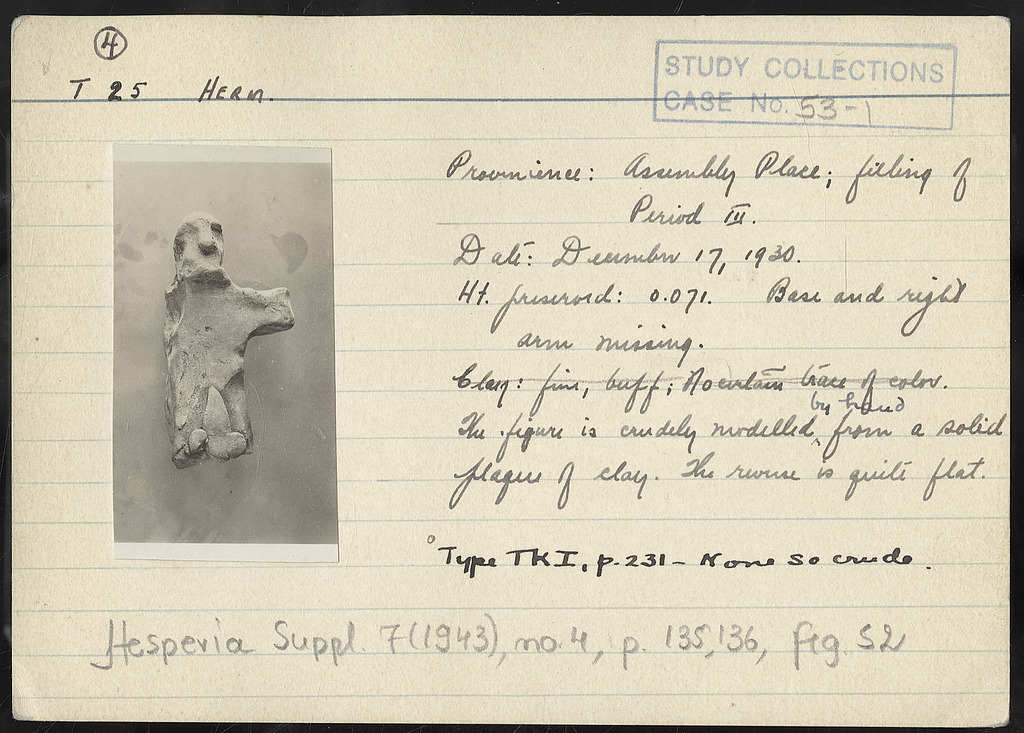 4
T 25 HERM.
STUDY COLLECTIONS
CASE No. 53-1
Provenience: Assembly Place; filling of
Period III.
Date: December 17, 1930.
Ht. preserved: 0.071. Base and right
arm missing.
Clay: fine, buff; No certain trace of color.
by hand
The figure is crudely modelled ^ from a solid
plaque of clay. The reverse is quite flat.
Type TK I, p. 231 - None so crude.
Hesperia Suppl. 7 (1943), no. 4, p. 135,136, fig. 52